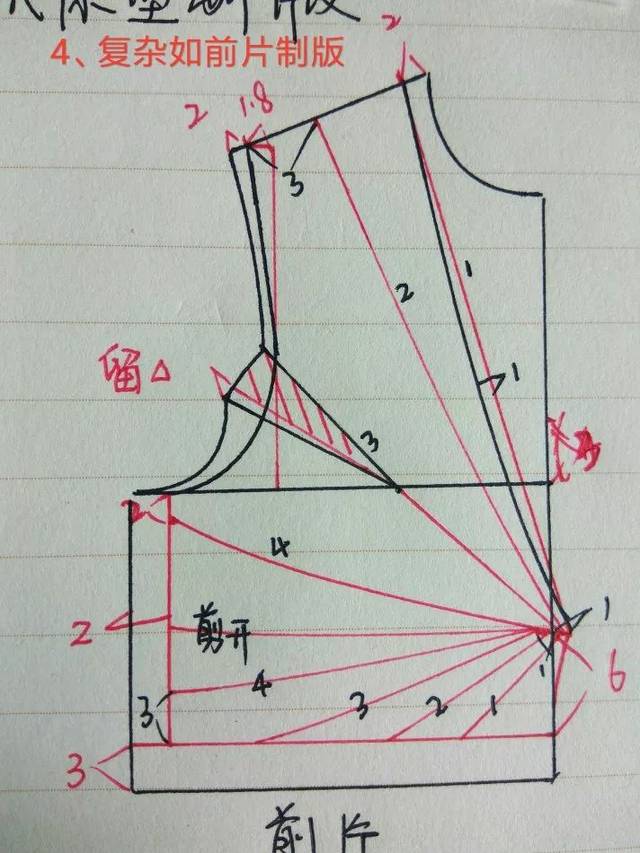 4、复杂如前片制版
2
2 1.8
3
1
2
1
留△
3
2
4
2
剪开
1
1
3
4
3
2
1
6
3
前片